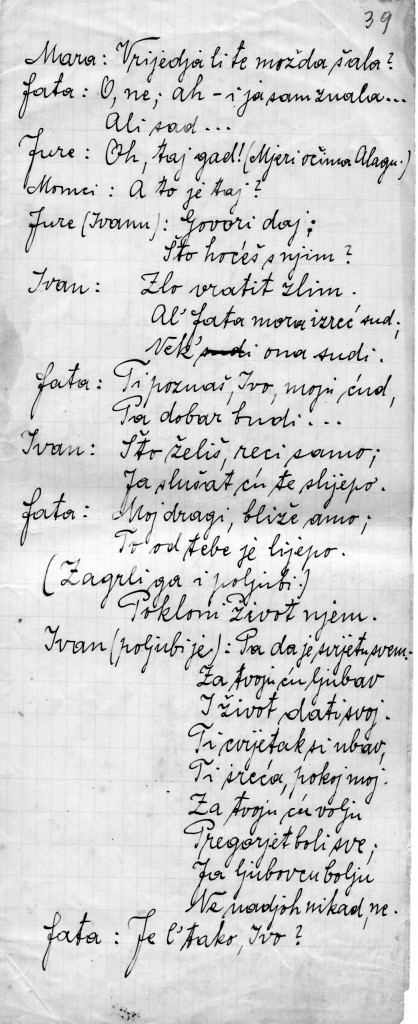 39
Mara: Vrijedja li te možda šala?
Fata: O, ne; ah – i ja sam znala...
Ali sad...
Jure: Oh, taj gad! (Mjeri očima Alagu.)
Momci: A to je taj?
Jure (Ivanu): Govori daj;
Što hoćeš s njim?
Ivan: Zlo vratit zlim.
Al' Fata mora izreć sud;
Nek' sudi ona sudi.
Fata: Ti poznaš, Ivo, moju ćud,
Pa dobar budi...
Ivan: Što želiš, reci samo;
Ja slušat ću te slijepo.
Fata: Moj dragi, bliže amo;
To od tebe je lijepo.
(Zagrli ga i poljubi.)
Pokloni život njem.
Ivan (poljubi je): Pa da je svijetu svem.
Za tvoju ću ljubav
I život dati svoj.
Ti cvijetak si ubav,
Ti sreća, pokoj moj.
Za tvoju ću volju
Pregorjet boli sve;
Ja ljubovcu bolju
Ne nadjoh nikad, ne.
Fata: Je l' tako, Ivo?